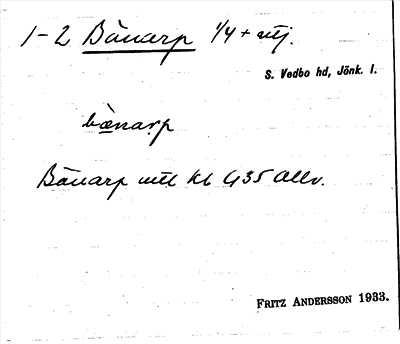 1-2 Bänarp 1/4 + utj.
S. Vedbo hd, Jönk. l.
bænarp
Bänarp util Kb G35 Allv.
FRITZ ANDERSSON 1933.